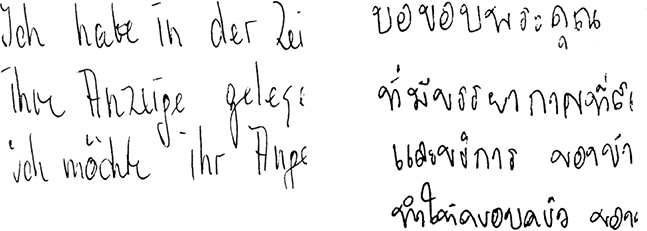 Ich habe in der Zei
ihre Anzeige gelese
ich möchte ihr Ange
ขอขอบพระคุณ
ที่มีบรรยากาศที่
และบริการ
ทำให้ครอบครัว ของ